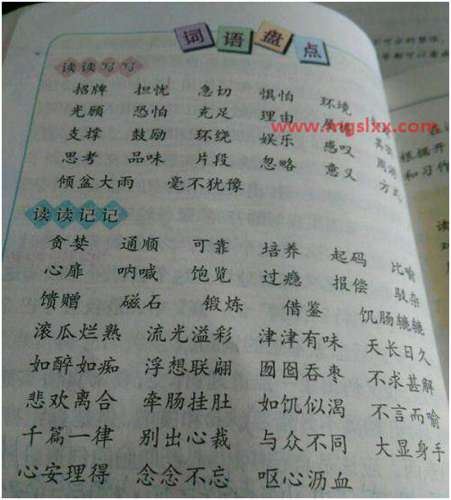 词语盘点
读读写写
招牌 担忧 急切 惧怕 环境
光顾 恐怕 充足 理由
www.mgslxx.com
支撑 鼓励 环绕 娱乐 感叹
思考 品味 片段 忽略 意义 方式
倾盆大雨 毫不犹豫
读读记记
贪婪 通顺 可靠 培养 起码 比喻
心扉 呐喊 饱览 过瘾 报偿 驳杂
馈赠 磁石 锻炼 借鉴 饥肠辘辘
滚瓜烂熟 流光溢彩 津津有味 天长日久
如醉如痴 浮想联翩 囫囵吞枣 不求甚解
悲欢离合 牵肠挂肚 如饥似渴 不言而喻
千篇一律 别出心裁 与众不同 大显身手
心安理得 念念不忘 呕心沥血